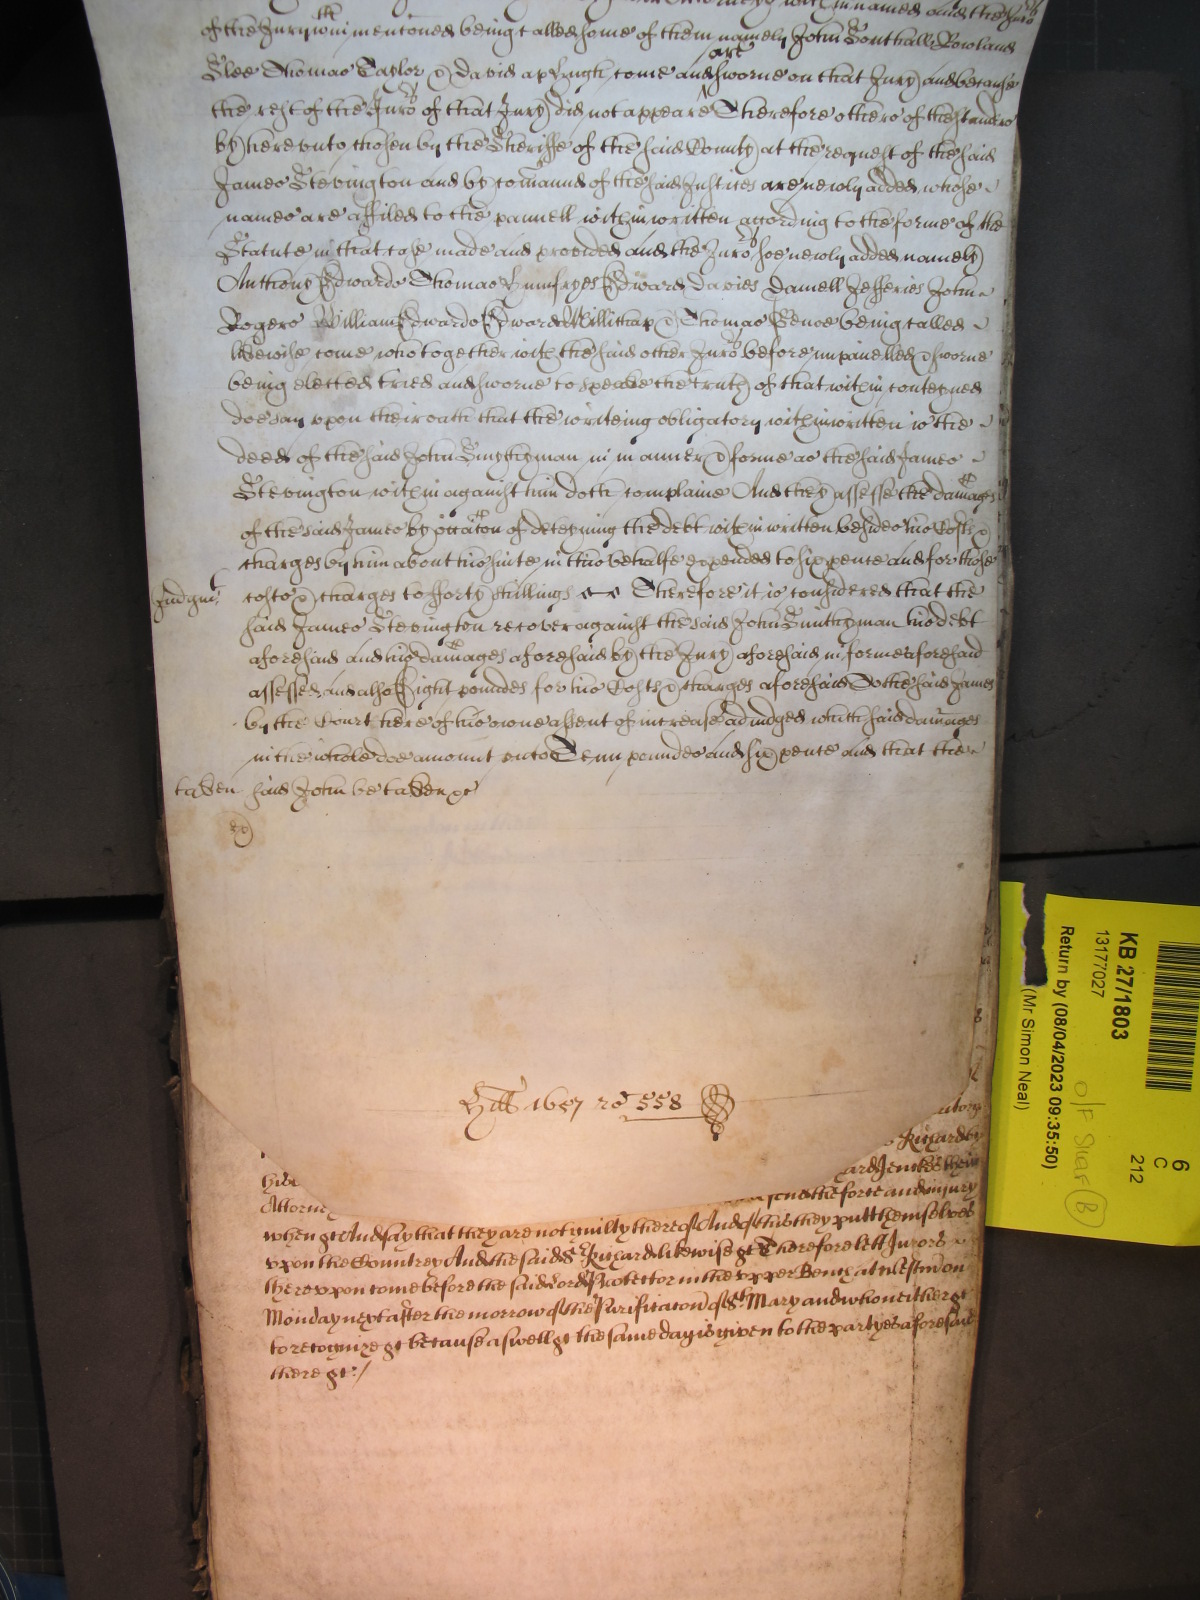 within named and the Juro^rs
of the Jury w^thin mentioned being called some of them namely John Southall Rowland
Slee Thomas Taylor & David ap Hugh come and are sworne on that Jury and because
the rest of the Juro^rs of that Jury did not appeare Therefore others of the standers
by hereunto chosen by the Sheriffe of the said County at the request of the said
James Stevington and by comaund of the said Justices are newly added whose
names are affiled to the pannell within written according to the forme of the
Statute in that case made and provided and the Juro^rs soe newly added namely
Anthony Edwards Thomas Humfryes Edward Davies Daniell Jefferies John
Rogers William Edwards Edward Millichap & Thomas Bence being called
likewise come who together with the said other Juro^rs before impanelled & sworne
being elected tried and sworne to speake the truth of that within conteyned
doe say upon their oath that the writeing obligatory within written is the
deed of the said John in manner & forme as the said James
Stevington within against him doth complaine And they assesse the damages
of the said James by occacon of deteyning the debt within written besides his Costs &
charges by him about his suite in this behalfe expended to six pence and for those
Judgm^t
costs & charges to fforty shillings Therefore it is considered that the
said James Stevington recover against the said John his debt
aforesaid and his damages aforesaid by the Jury aforesaid in forme aforesaid
assessed and also Eight poundes for his Costs & charges aforesaid to the said James
by the Court here of his owne assent of increase adiudged which said damages
in the whole doe amount unto Tenn poundes and six pence and that the
taken said John be taken &c
Hill 1657 ro 558
Richard by
Attorney the force and iniury
when &c And say that they are not guilty thereof And of this they putt themselves
uppon the Countrey And the said S^r Richard likewise &c Therefore lett Jurors
thereuppon come before the said Lord Protector in the upper Bench at Westm on
Monday next after the morrow of the Purificacon of S^t Mary and who neither &c
to recognize &c because aswell &c the same day is given to the partyes aforesaid
there &c:/
KB 27/1803
13177027
Return by (08/04/2023 09:35:50)
(Mr Simon Neal)
O/F Shelf B
6
C
212